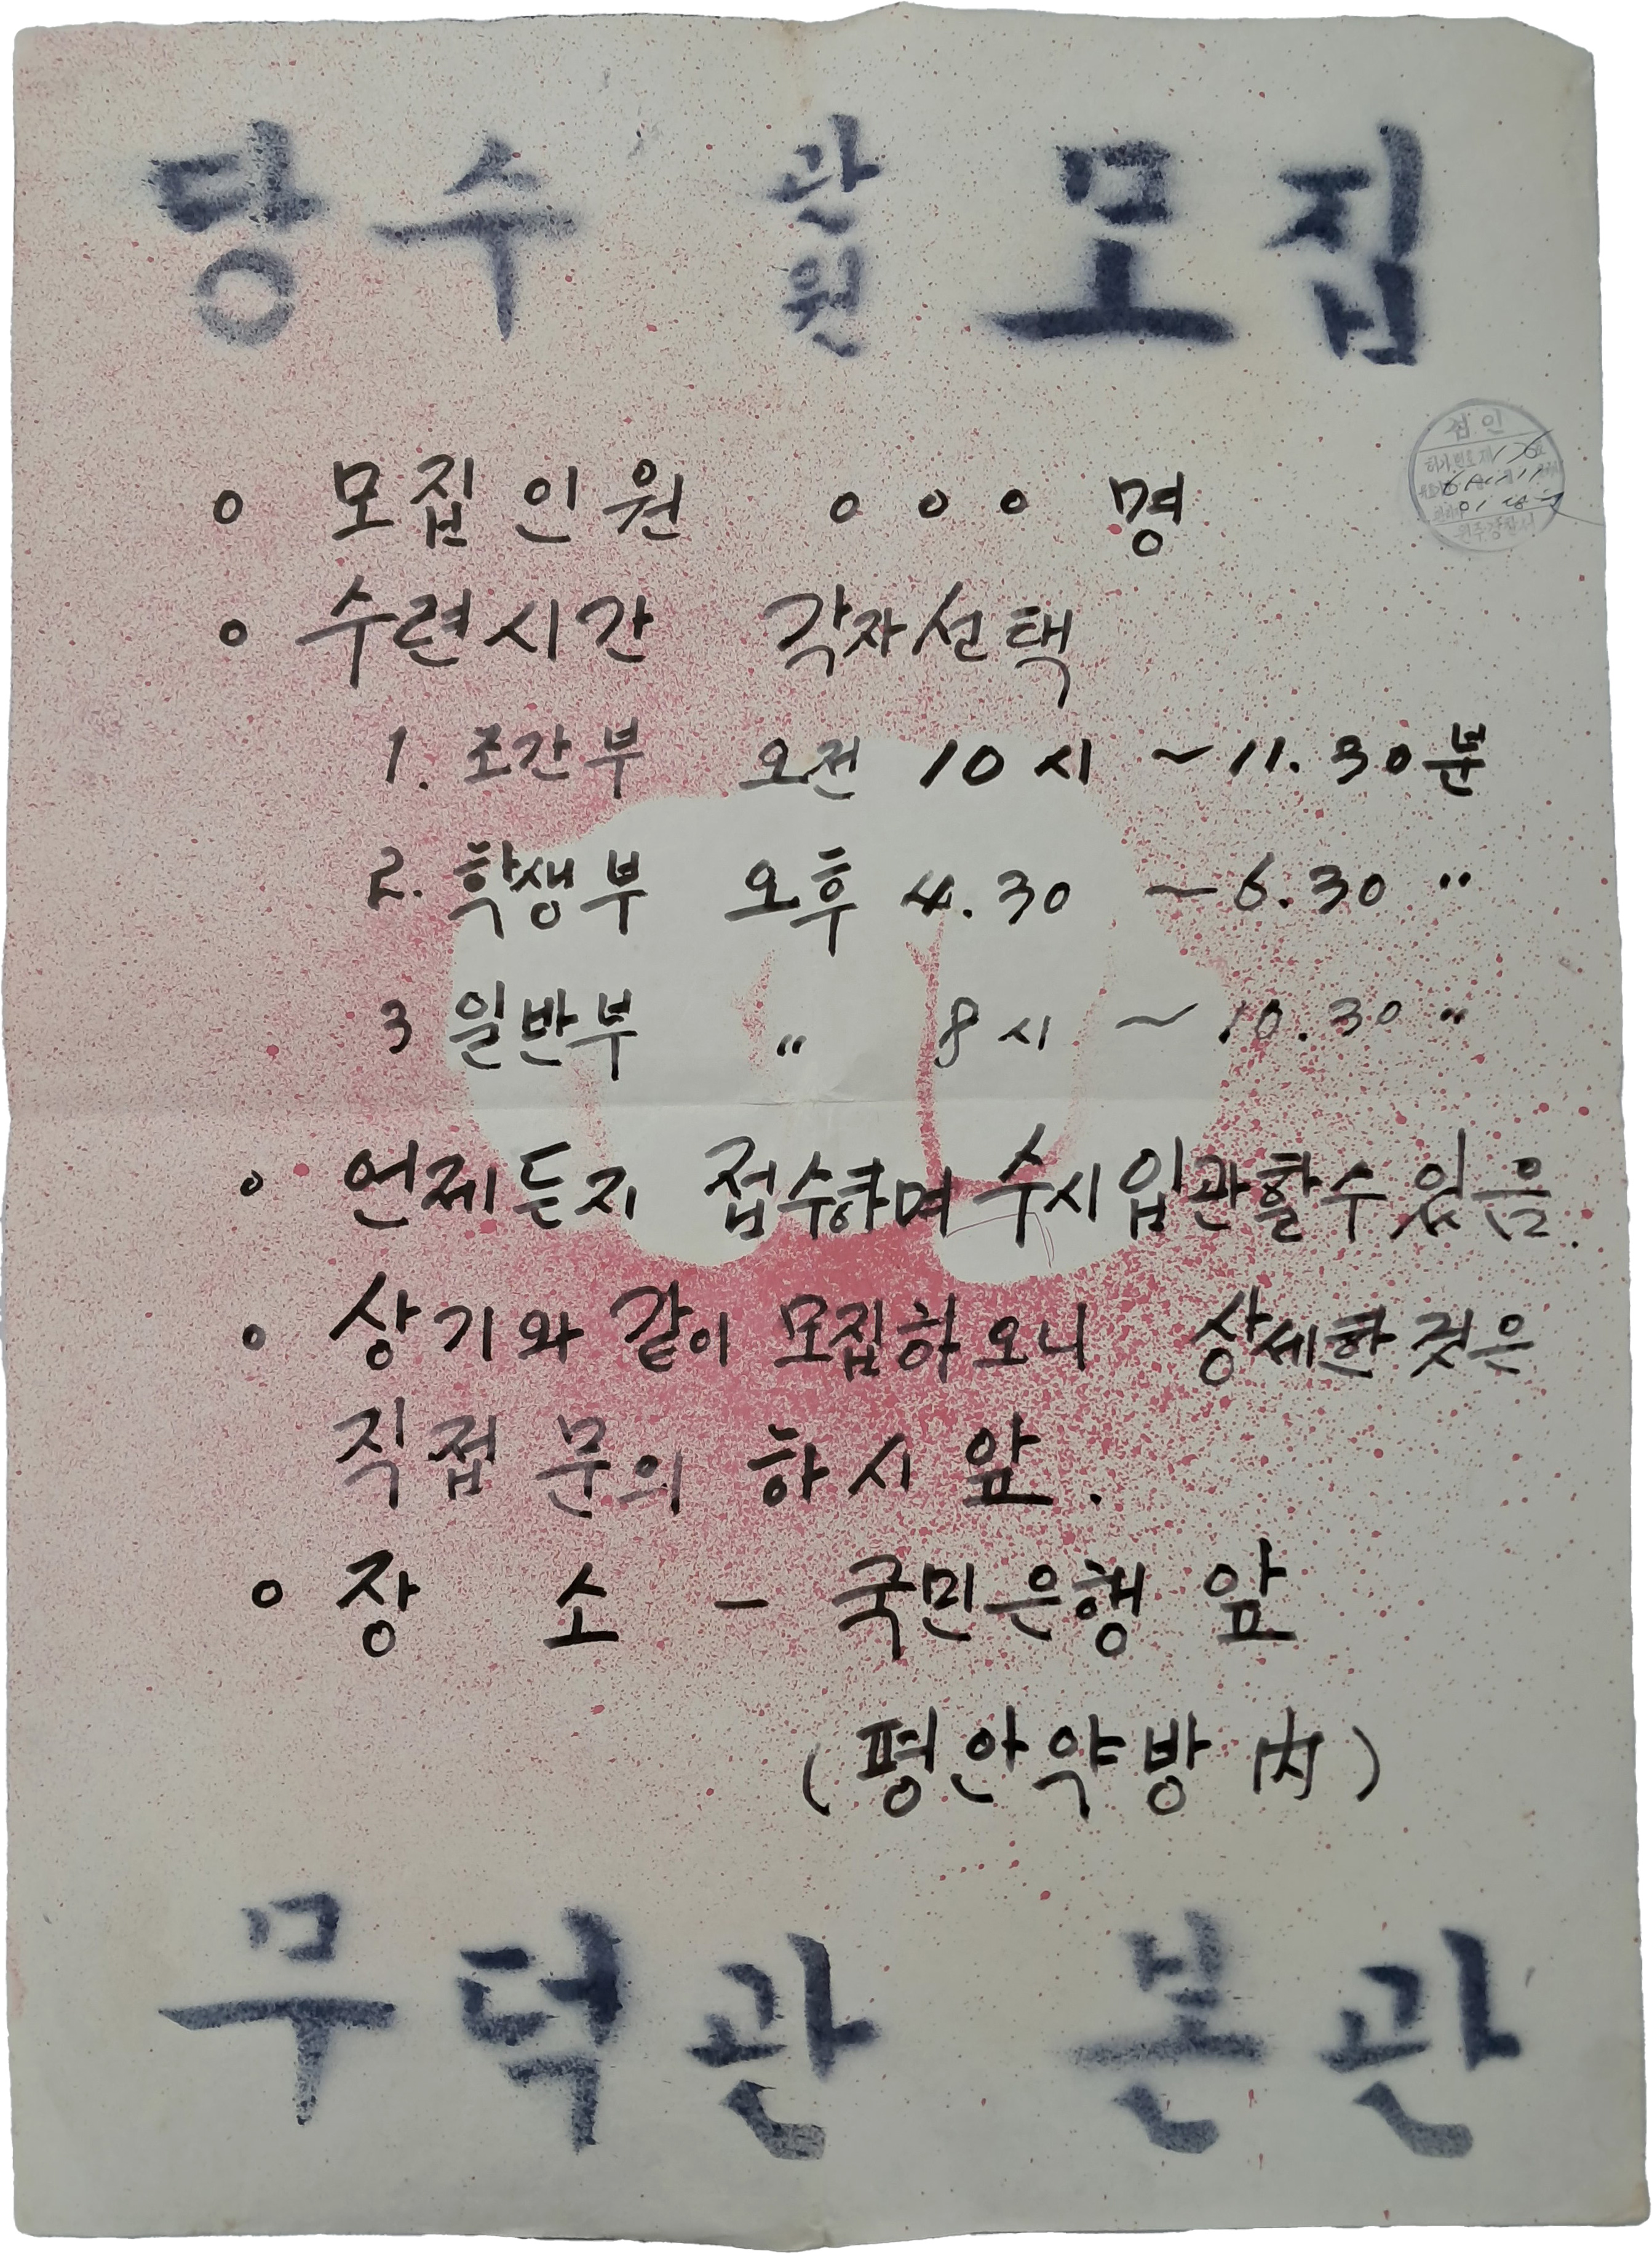 당수 관원 모집
검인
원주경찰서
○ 모집인원 ○○○명
○ 수련시간 각자선택
1. 조간부 오전 10시 ~ 11.30분
2. 학생부 오후 4.30 ~ 6.30 〃
3 일반부 〃 8시 ~ 10.30 〃
○ 언제든지 접수하며 수시입관할수 있음.
○ 상기와 같이 모집하오니 상세한 것은
직접 문의 하시앞.
○ 장 소 - 국민은행 앞
(평안약방 內)
무덕관 본관